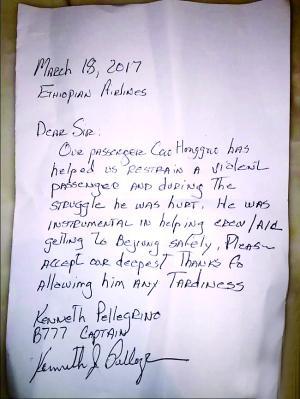 March 18, 2017
Ethiopian Airlines
Dear Sir:
Our passenger Cao Hongguo has
helped us restrain a violent
passenger and during the
struggle he was hurt. He was
instrumental in helping crew/Aid
getting to Bejing safely. Please
accept our deepest thanks fo
allowing him any Tardiness
Kenneth Pellegrino
B777 Captain
Kenneth J